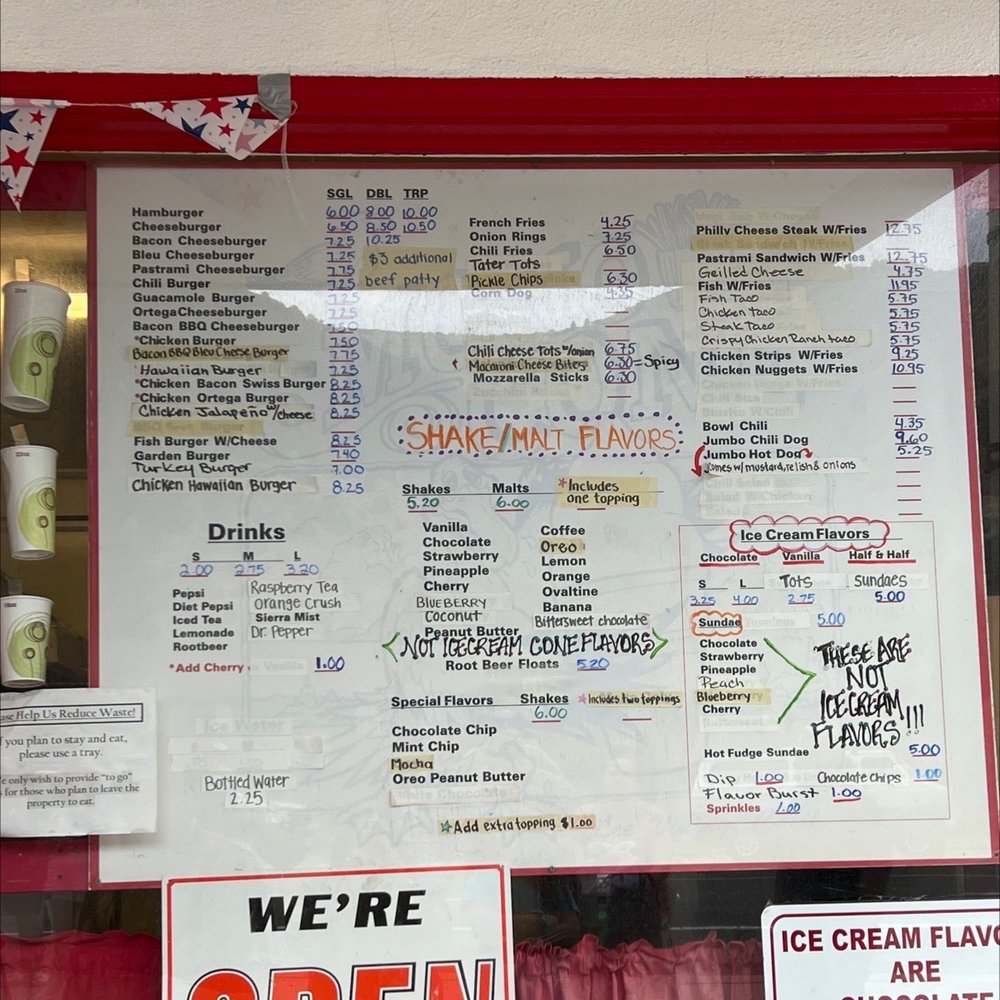 SGL DBL TRP
Hamburger 6.00 8.00 10.00
Cheeseburger 6.50 8.50 10.50
Bacon Cheeseburger 7.25 10.25
Bleu Cheeseburger 7.25
Pastrami Cheeseburger 7.75
$3 additional
beef patty
Chili Burger 7.25
Guacamole Burger 7.25
Ortega Cheeseburger 7.25
Bacon BBQ Cheeseburger 7.50
*Chicken Burger 7.50
Bacon BBQ Bleu Cheese Burger 7.75
Hawaiian Burger 7.25
*Chicken Bacon Swiss Burger 8.25
*Chicken Ortega Burger 8.25
Chicken Jalapeño w/cheese 8.25
Fish Burger W/Cheese 8.25
Garden Burger 7.40
Turkey Burger 7.00
Chicken Hawaiian Burger 8.25
French Fries 4.25
Onion Rings 7.25
Chili Fries 6.50
Tater Tots
Pickle Chips 6.30
Corn Dog 4.35
Chili Cheese Tots w/onion 6.75
Macaroni Cheese Bites 6.30 = Spicy
Mozzarella Sticks 6.30
Philly Cheese Steak W/Fries 12.75
Pastrami Sandwich W/Fries 12.75
Grilled Cheese 4.75
Fish W/Fries 11.95
Fish Taco 5.75
Chicken Taco 5.75
Steak Taco 5.75
Crispy Chicken Ranch taco 5.75
Chicken Strips W/Fries 9.25
Chicken Nuggets W/Fries 10.95
Bowl Chili 4.35
Jumbo Chili Dog 9.60
Jumbo Hot Dog 5.25
Comes w/ mustard, relish & onions
SHAKE/MALT FLAVORS
Shakes Malts
5.20 6.00
*Includes
one topping
Vanilla
Chocolate
Strawberry
Pineapple
Cherry
BLUEBERRY
Coconut
Peanut Butter
Coffee
Oreo
Lemon
Orange
Ovaltine
Banana
Bittersweet chocolate
NOT ICECREAM CONE FLAVORS
Root Beer Floats 5.20
Special Flavors Shakes *Includes two toppings
6.00
Chocolate Chip
Mint Chip
Mocha
Oreo Peanut Butter
White Chocolate
☆Add extra topping $1.00
Drinks
S M L
2.00 2.75 3.20
Pepsi
Diet Pepsi
Iced Tea
Lemonade
Rootbeer
Raspberry Tea
Orange Crush
Sierra Mist
Dr. Pepper
*Add Cherry 1.00
Bottled Water
2.25
Ice Cream Flavors
Chocolate Vanilla Half & Half
S L TOTS Sundaes
3.25 4.00 2.75 5.00
Sundae 5.00
Chocolate
Strawberry
Pineapple
Peach
Blueberry
Cherry
THESE ARE
NOT
ICECREAM
FLAVORS!!!
Hot Fudge Sundae 5.00
Dip 1.00 Chocolate Chips 1.00
Flavor Burst 1.00
Sprinkles 1.00
Help Us Reduce Waste!
you plan to stay and eat,
please use a tray.
only wish to provide "to go"
for those who plan to leave the
property to eat.
22oz
22oz
16oz
WE'RE
OPEN
ICE CREAM FLAVO
ARE
CHOCOLATE